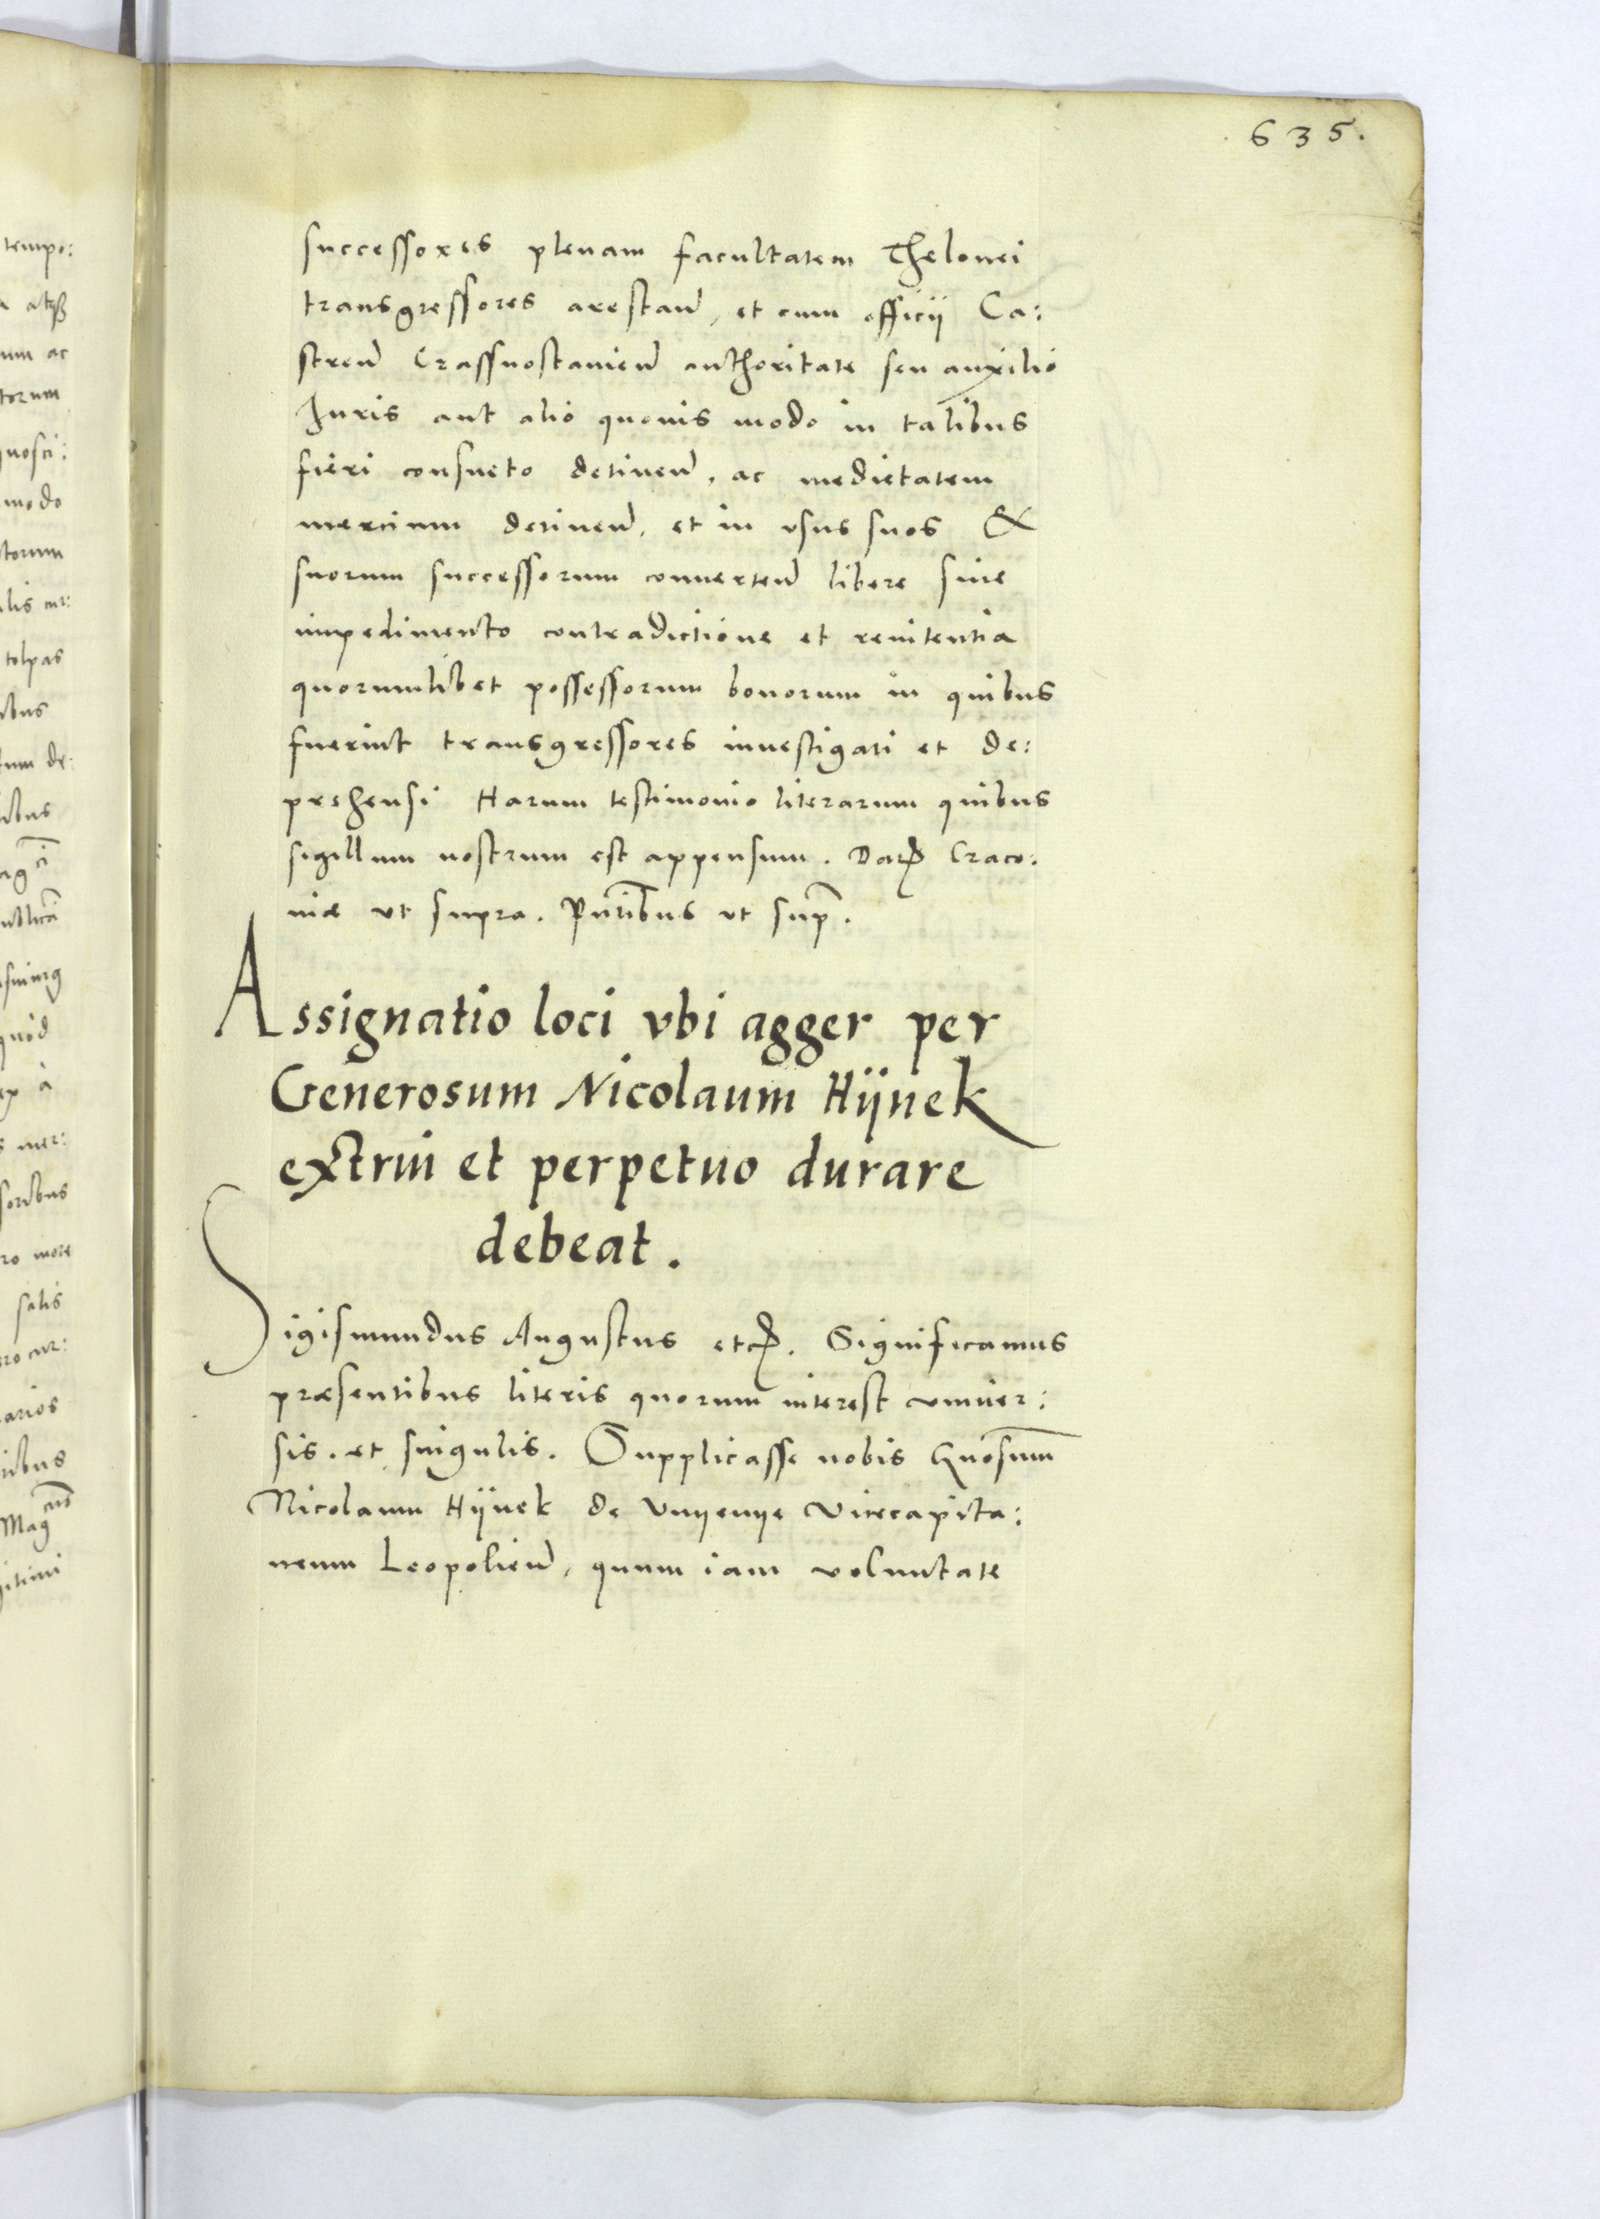 635.
successores plenam facultatem Thelonei
transgressores arestand, et cum officij Ca:
stren Crassnostauien authoritate seu auxilio
Iuris aut alio quouis modo in talibus
fieri consueto detinen, ac medietatem
mercium detinen, et in vsus suos &
suorum successorum conuerten libere sine
impedimento contradictione et renitentia
quorumlibet possessorum bonorum in quibus
fuerint transgressores inuestigati et de:
prehensi Harum testimonio literarum quibus
sigillum nostrum est appensum. Dat Craco:
uiæ vt supra. Pntibus vt sup.
Assignatio loci vbi agger per
Generosum Nicolaum Hijnek
extrui et perpetuo durare
debeat.
Sigismundus Augustus etc. Significamus
præsentibus literis quorum interest vniuer:
sis. et singulis. Supplicasse nobis Gnosum
Nicolaum Hijnek de Vnyenye Vicecapita:
neum Leopolien, quum iam voluntate